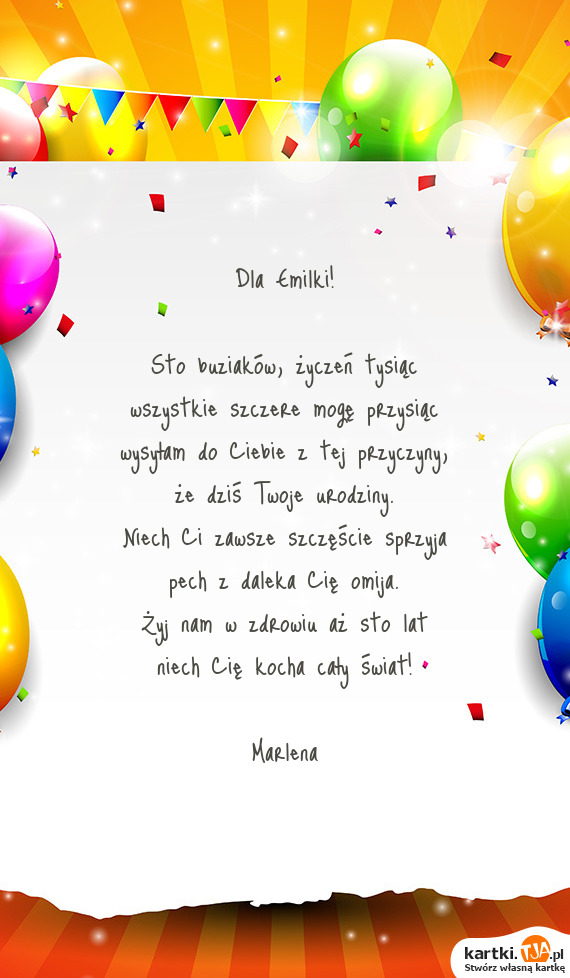 Dla Emilki!
Sto buziaków, życzeń tysiąc
wszystkie szczere mogę przysiąc
wysyłam do Ciebie z tej przyczyny,
że dziś Twoje urodziny.
Niech Ci zawsze szczęście sprzyja
pech z daleka Cię omija.
Żyj nam w zdrowiu aż sto lat
niech Cię kocha cały świat!
Marlena
kartki.TJA.pl
Stwórz własną kartkę